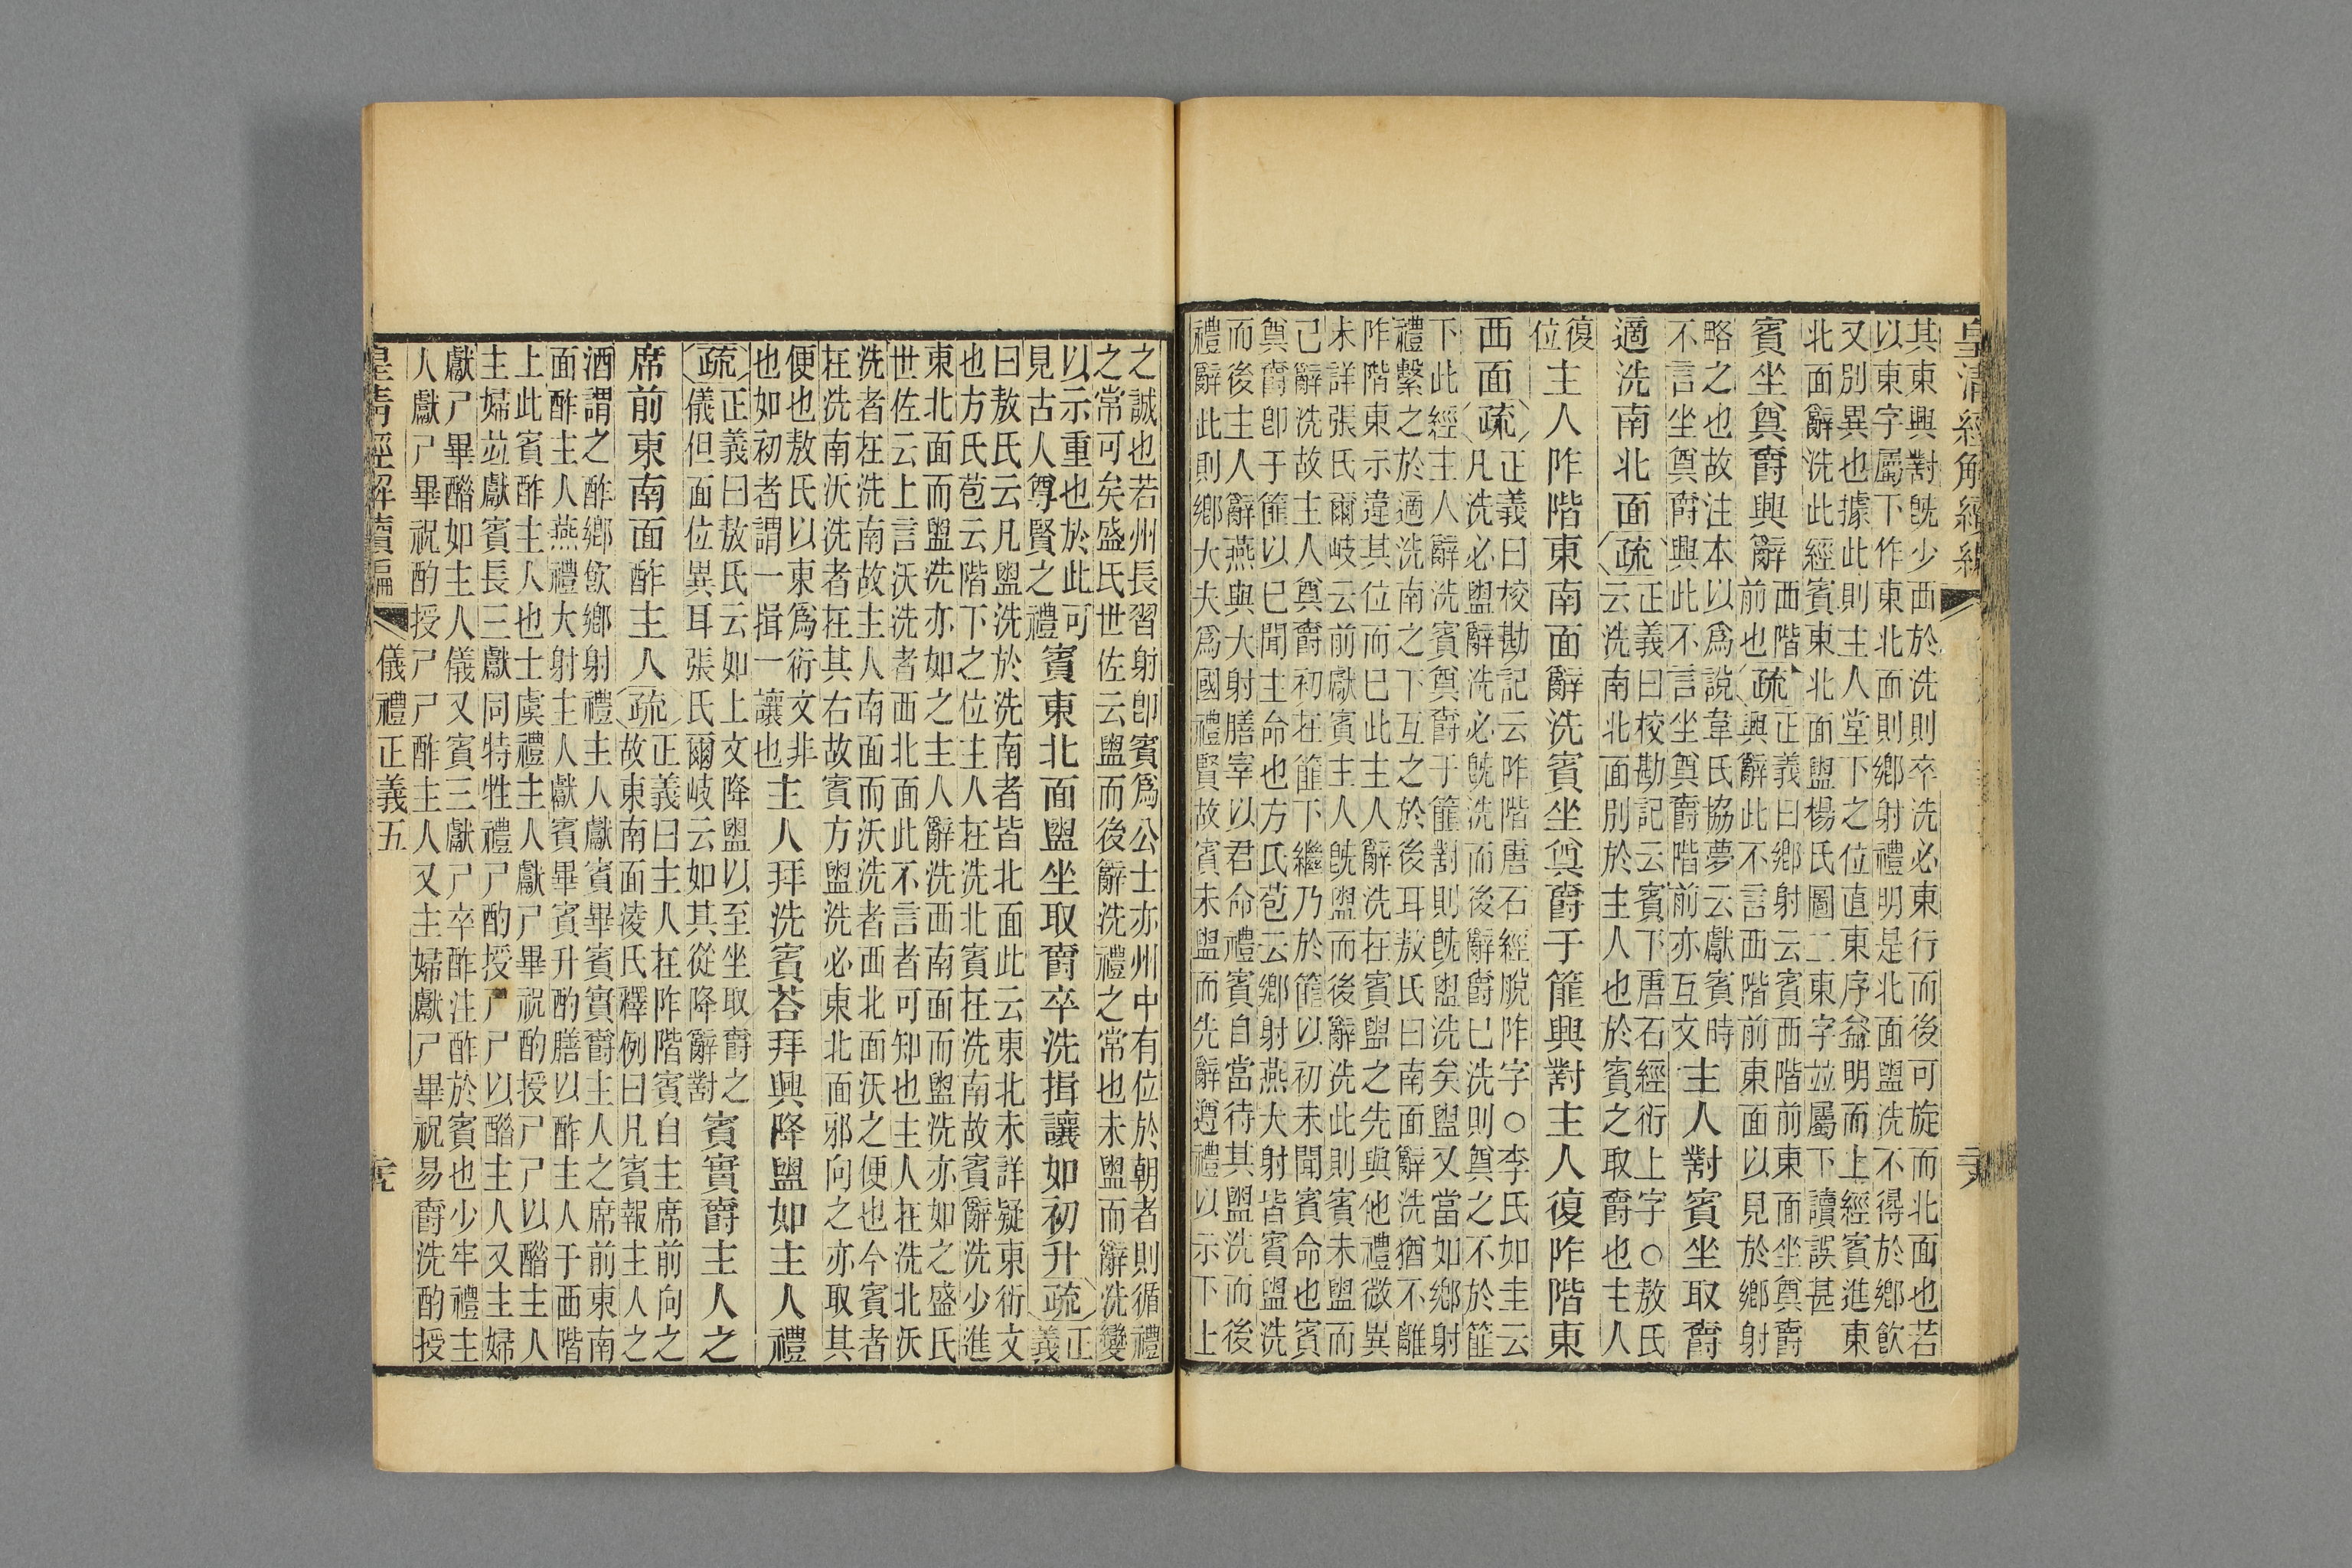 皇清經解續編
其東興對旣少西於洗則卒洗必東行而後可旋而北面也若
以東字屬下作東北面則鄉射禮明是北面盥洗不得於鄉飲
又別異也據此則主人堂下之位直東序益明而上經賓進東
北面辭洗此經賓東北面盥楊氏圖二東字並屬下讀誤甚
賓坐奠爵興辭
西階
前也
疏
正義曰鄉射云賓西階前東面坐奠爵
興辭此不言西階前東面以見於鄉射
略之也故注本以爲說韋氏協夢云獻賓時
不言坐奠爵興此不言坐奠爵階前亦互文
主人對賓坐取爵
適洗南北面
疏
正義曰校勘記云賓下唐石經衍上字○敖氏
云洗南北面別於主人也於賓之取爵也主人
復
位
主人阼階東南面辭洗賓坐奠爵于篚興對主人復阼階東
西面
疏
正義曰校勘記云阼階唐石經脫阼字○李氏如圭云
凡洗必盥辭洗必旣洗而後辭爵已洗則奠之不於篚
下此經主人辭洗賓奠爵于篚對則旣盥洗矣盥又當如鄉射
禮繫之於適洗南之下互之於後耳敖氏曰南面辭洗猶不離
阼階東示違其位而已此主人辭洗在賓盥之先與他禮微異
未詳張氏爾岐云前獻賓主人旣盥而後辭洗此則賓未盥而
已辭洗故主人奠爵初在篚下繼乃於篚以初未聞賓命也賓
奠爵卽于篚以已聞主命也方氏苞云鄉射燕大射皆賓盥洗
而後主人辭燕與大射膳宰以君命禮賓自當待其盥洗而後
禮辭此則鄉大夫爲國禮賢故賓未盥而先辭遵禮以示下上
之誠也若州長習射卽賓爲公士亦州中有位於朝者則循禮
之常可矣盛氏世佐云盥而後辭洗禮之常也未盥而辭洗變
以示重也於此可
見古人尊賢之禮
賓東北面盥坐取爵卒洗揖讓如初升
疏
正
義
曰敖氏云凡盥洗於洗南者皆北面此云東北未詳疑東衍文
也方氏苞云階下之位主人在洗北賓在洗南故賓辭洗少進
東北面而盥洗亦如之主人辭洗西南面而盥洗亦如之盛氏
世佐云上言沃洗者西北面此不言者可知也主人在洗北沃
洗者在洗南故主人南面而沃洗者西北面沃之便也今賓者
在洗南沃洗者在其右故賓方盥洗必東北面邪向之亦取其
便也敖氏以東爲衍文非
也如初者謂一揖一讓也
主人拜洗賓荅拜興降盥如主人禮
疏
正義曰敖氏云如上文降盥以至坐取爵之
儀但面位異耳張氏爾岐云如其從降辭對
賓實爵主人之
席前東南面酢主人
疏
正義曰主人在阼階賓自主席前向之
故東南面淩氏釋例曰凡賓報主人之
酒謂之酢鄉飲鄉射禮主人獻賓畢賓實爵主人之席前東南
面酢主人燕禮大射主人獻賓畢賓升酌膳以酢主人于西階
上此賓酢主人也士虞禮主人獻尸畢祝酌授尸尸以醋主人
主婦並獻賓長三獻同特牲禮尸酌授尸尸以醋主人又主婦
獻尸畢醋如主人儀又賓三獻尸卒酢注酢於賓也少牢禮主
人獻尸畢祝酌授尸尸酢主人又主婦獻尸畢祝易爵洗酌授
皇清經解續編
儀禮正義五